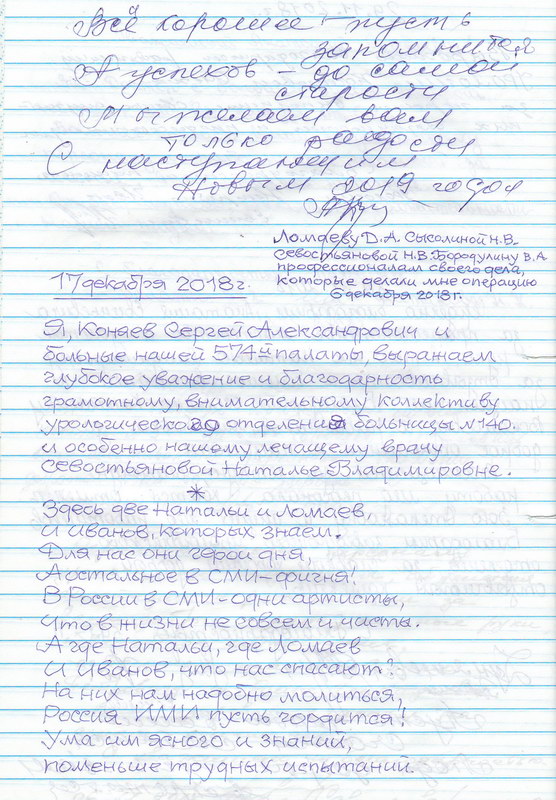 Всё хорошее пусть
запомнится
А успехов – до самой
старости
Мы желаем вам
только радости
С наступающим
Новым 2019 годом
Ломаеву Д.А. Сысолиной Н.В.
Севостьяновой Н.В. Бородулину В.А
профессионалам своего дела,
которые делали мне операцию
6 декабря 2018г.
17 декабря 2018г.
Я, Коняев Сергей Александрович и
больные нашей 574-й палаты, выражаем
глубокое уважение и благодарность
грамотному, внимательному коллективу
урологического отделения больницы №40.
и особенно нашему лечащему врачу
Севостьяновой Наталье Владимировне.
*
Здесь две Натальи и Ломаев,
И Иванов, которых знаем.
Для нас они герои дня,
А остальное в СМИ–фигня!
В России в СМИ–одни артисты,
Что в жизни не совсем и чисты.
А где Натальи, где Ломаев
И Иванов, что нас спасают?
На них нам надобно молиться,
Россия ИМИ пусть гордится!
Ума им ясного и знаний,
поменьше трудных испытаний.